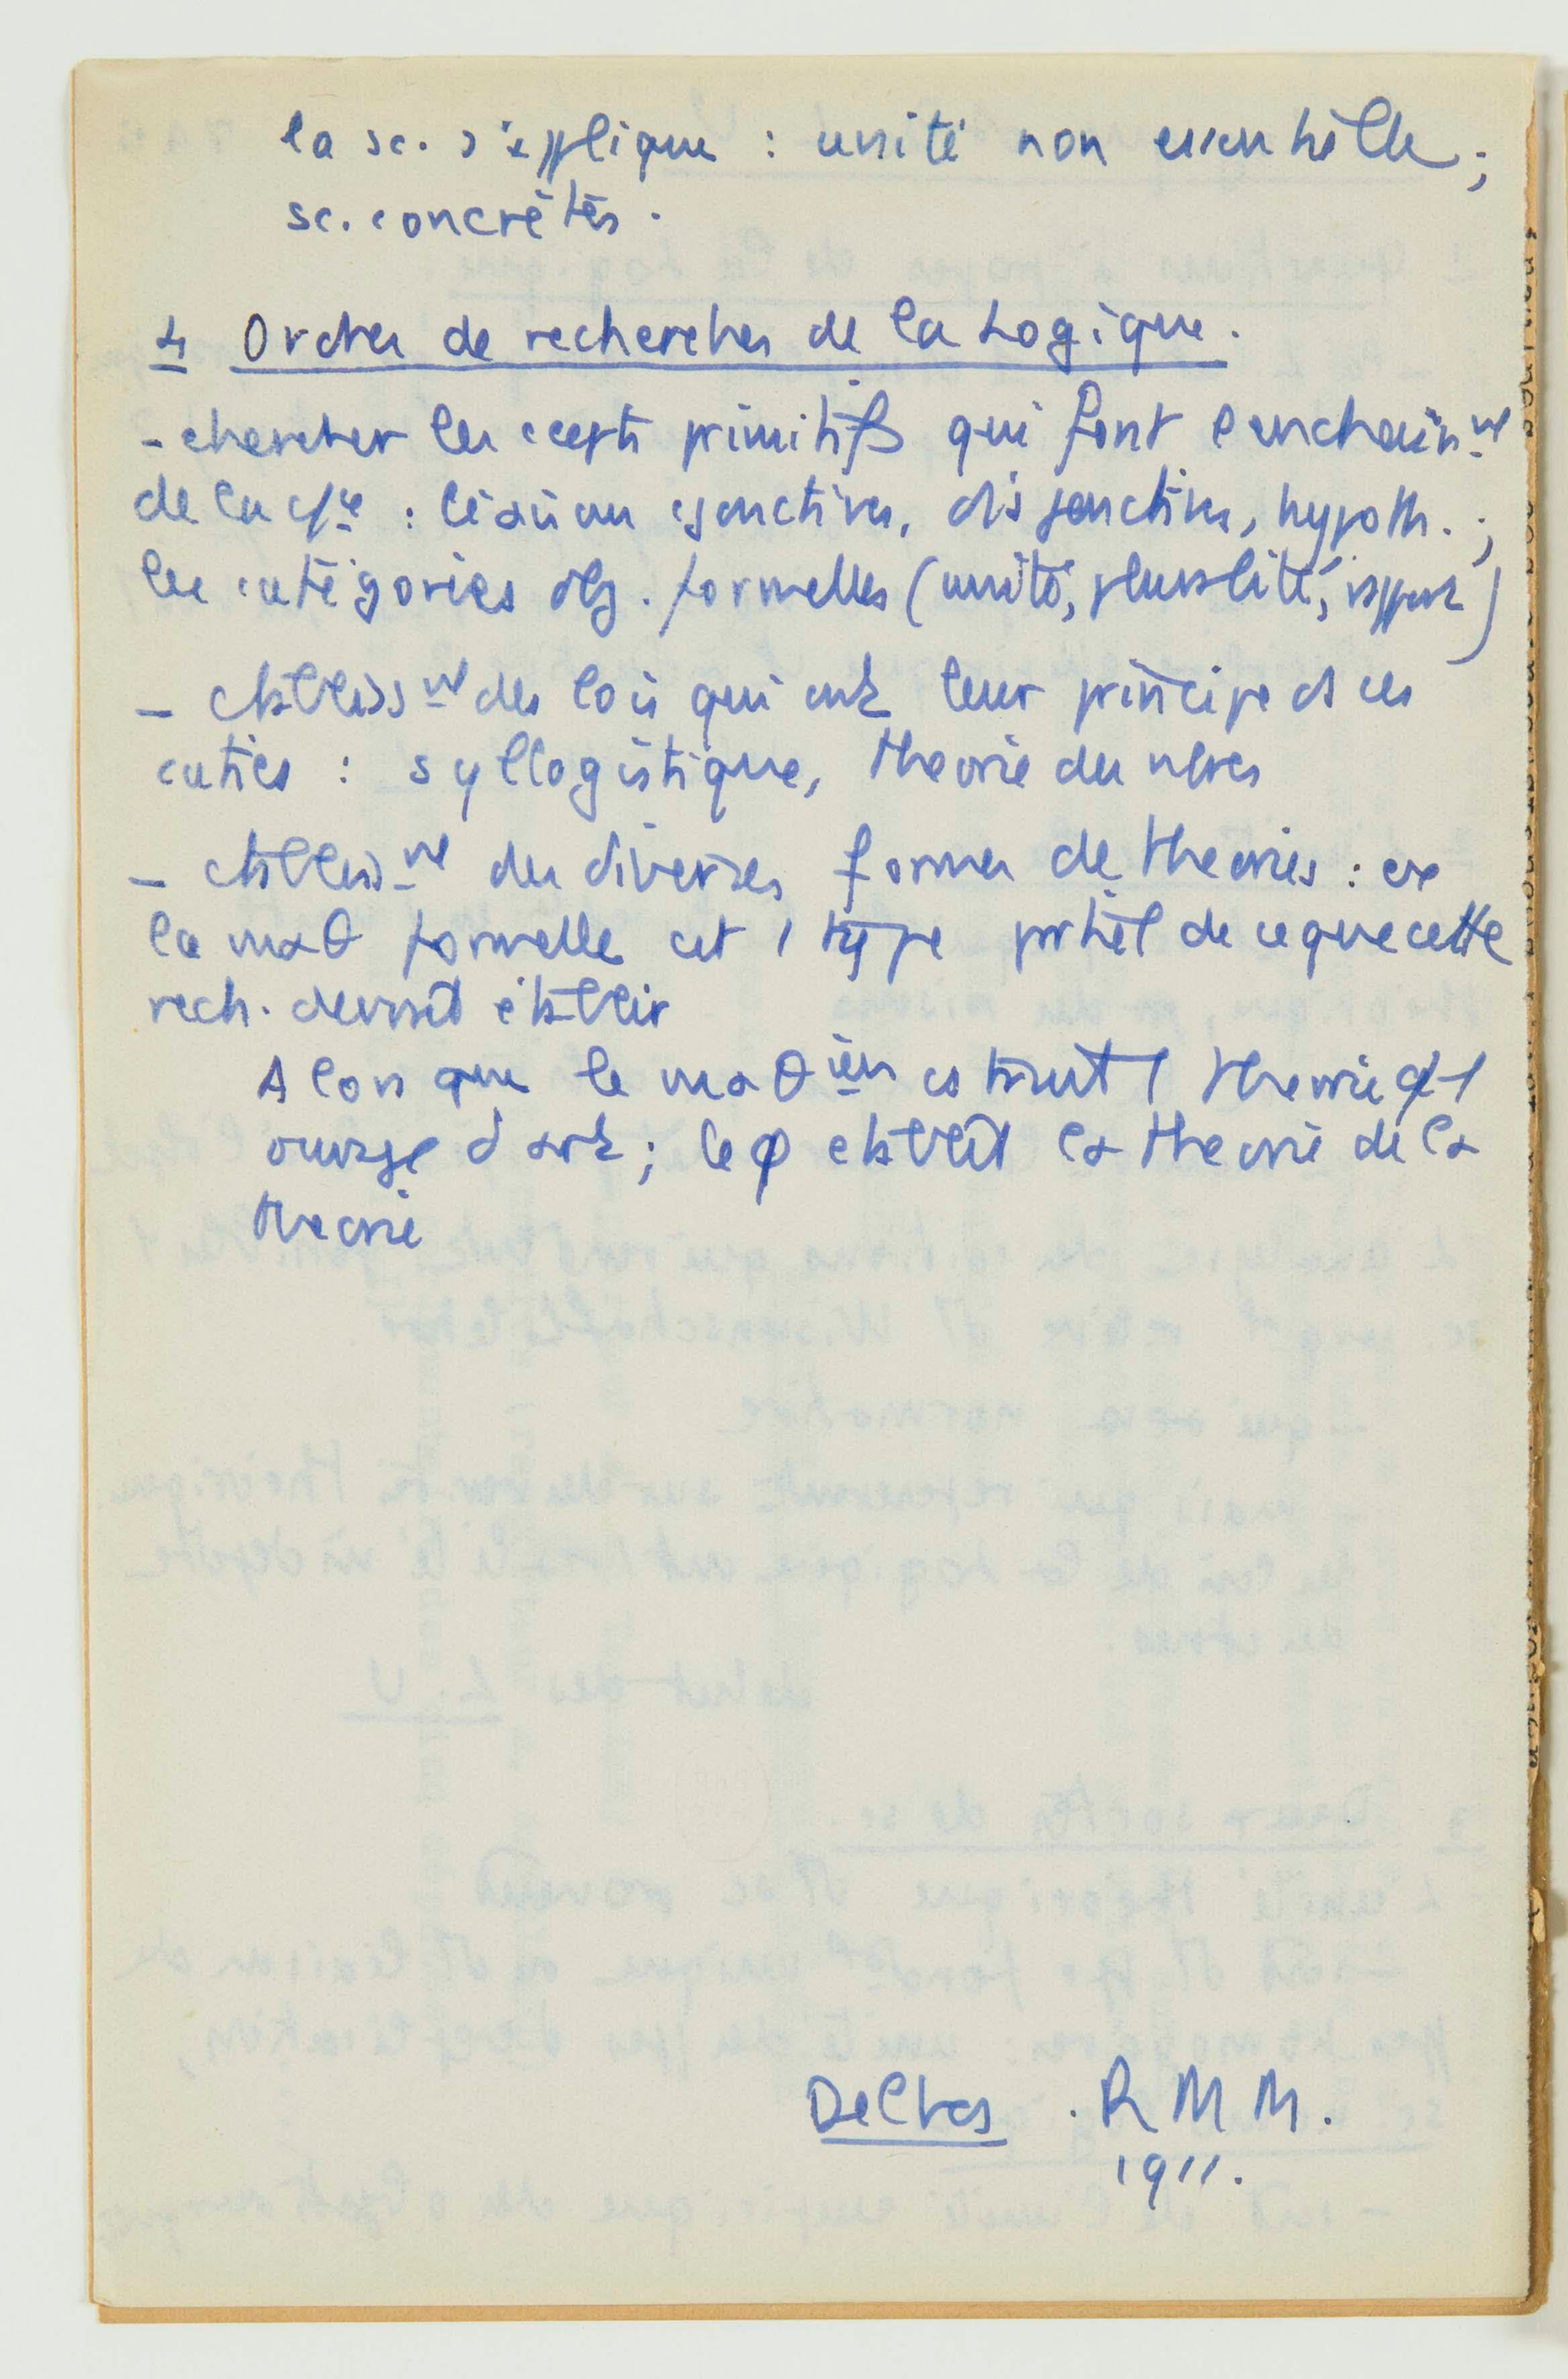 la sc. s'applique : unité non essentielle ;
sc. concrètes.
4 Ordres de recherches de la Logique.
- chercher les ccepts primitifs qui font l'enchaîn.nt
de la : liaison cjonctives, disjonctives, hypoth. ;
les catégories obj. formelles (unité, pluralité, rapport)
- etabliss nt des lois qui ont leur principe ds ces
caties : syllogistique, theorie des nbres
- etabliss nt des diverses formes de theories : ex
la maθ formelle est 1 type partiel de ce que cette
rech. devrait établir
Alors que le maθ ien cstruit 1 theorie 1
ouvrage d'art ; le φ etablit la theorie de la
theorie
Delbos . R M M.
1911.